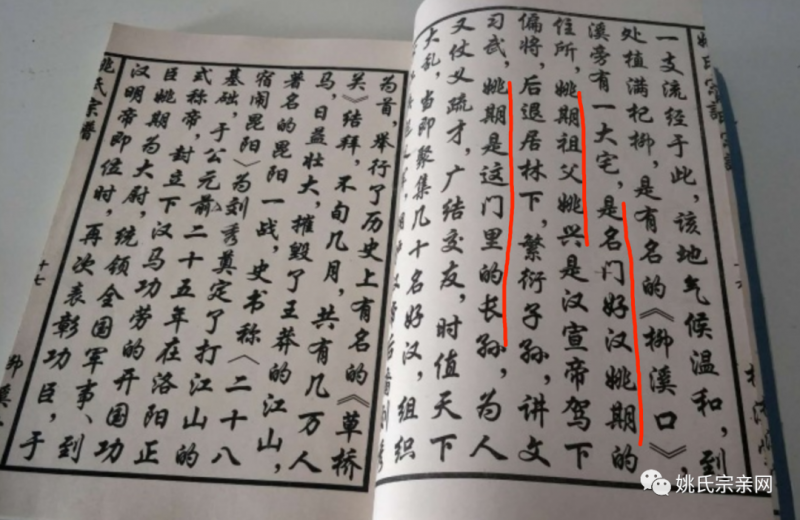 一支流经于此，该地气候温和，到
处植满杞柳，是有名的《柳溪口》，
溪旁有一大宅，是名门好汉姚期的
住所，姚期祖父姚兴是汉宣帝驾下
偏将，后退居林下，繁衍子孙，讲文
习武，姚期是这门里的长孙，为人
又仗义疏才，广结交友，时值天下
大乱，当即聚集几十名好汉，组织
为首，举行了历史上有名的《草桥
关》结拜，不旬几月，共有几万人
马，日益壮大，摧毁了王莽的江山，
著名的昆阳一战，史书称《二十八
宿闹昆阳》为刘秀奠定了打江山的
基础，于公元前二十五年在洛阳正
式称帝，封立下汉马功劳的开国功
臣姚期为大尉，统领全国军事、到
汉明帝即位时，再次表彰功臣，于
姚氏宗谱
十七
姚氏宗亲网